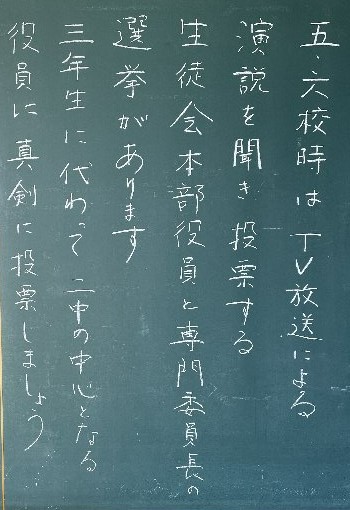 五・六校時はTV放送による
演説を聞き投票する
生徒会本部役員と専門委員長の
選挙があります
三年生に代わって二中の中心となる
役員に真剣に投票しましょう